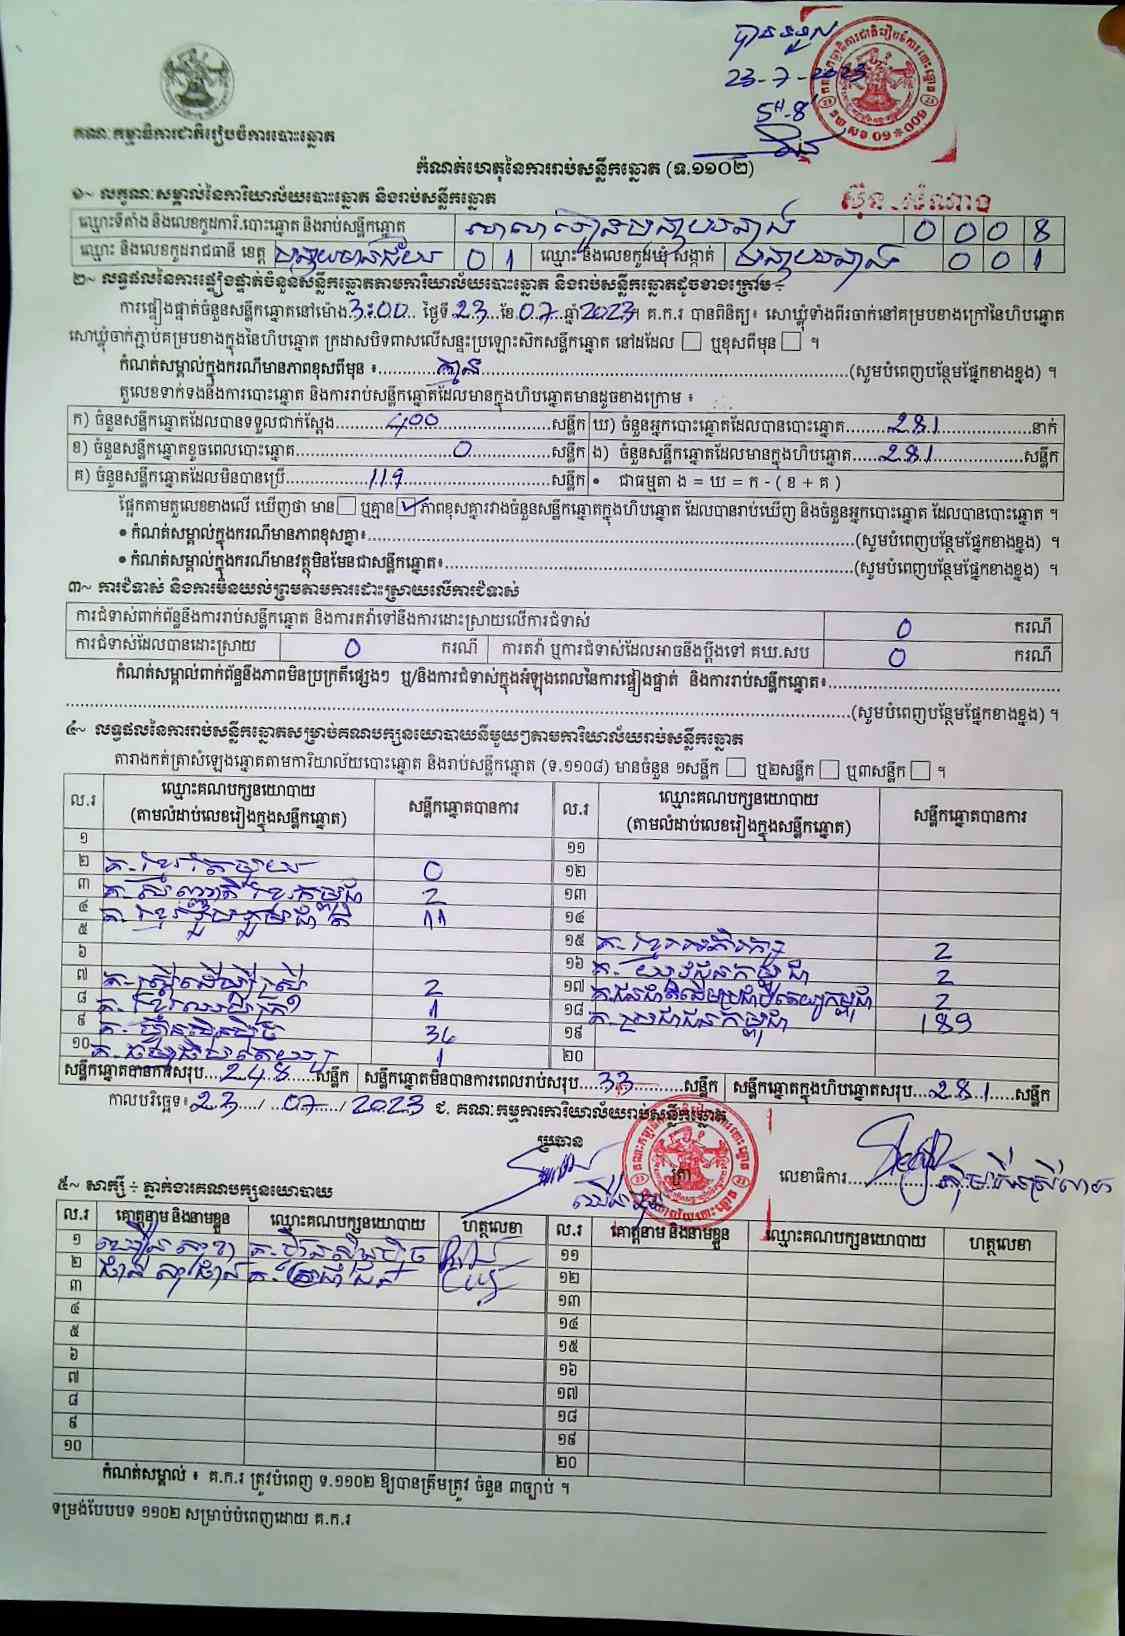 បានទទួល
23-7-2023
5H-8'
គណៈកម្មាធិការជាតិរៀបចំការបោះឆ្នោត
កំណត់ហេតុនៃការរាប់សន្លឹកឆ្នោត (ទ.១១០២)
១~ លក្ខណៈសម្គាល់នៃការិយាល័យបោះឆ្នោត និងរាប់សន្លឹកឆ្នោត
ឈ្មោះទីតាំង និងលេខកូដការិ.បោះឆ្នោត និងរាប់សន្លឹកឆ្នោត សាលារៀន 0 0 0 8
ឈ្មោះ និងលេខកូដរាជធានី ខេត្ត បន្ទាយមានជ័យ 0 1 ឈ្មោះ និងលេខកូដឃុំ សង្កាត់ 0 0 1
២~ លទ្ធផលនៃការផ្ទៀងផ្ទាត់ចំនួនសន្លឹកឆ្នោតតាមការិយាល័យបោះឆ្នោត និងរាប់សន្លឹកឆ្នោតដូចខាងក្រោម ÷
ការផ្ទៀងផ្ទាត់ចំនួនសន្លឹកឆ្នោតនៅម៉ោង 3:00 ថ្ងៃទី 23 ខែ 07 ឆ្នាំ 2023 ។ គ.ក.រ បានពិនិត្យ៖ សោឃ្លុំទាំងពីរចាក់នៅគម្របខាងក្រៅនៃហិបឆ្នោត
សោឃ្លុំចាក់ភ្ជាប់គម្របខាងក្នុងនៃហិបឆ្នោត ក្រដាសបិទពាសលើសន្ទះប្រឡោះស៊កសន្លឹកឆ្នោត នៅដដែល ☐ ឬខុសពីមុន ☐ ។
កំណត់សម្គាល់ក្នុងករណីមានភាពខុសពីមុន ៖ គ្មាន (សូមបំពេញបន្ថែមផ្នែកខាងខ្នង) ។
តួលេខទាក់ទងនឹងការបោះឆ្នោត និងការរាប់សន្លឹកឆ្នោតដែលមានក្នុងហិបឆ្នោតមានដូចខាងក្រោម ៖
ក) ចំនួនសន្លឹកឆ្នោតដែលបានទទួលជាក់ស្តែង 400 សន្លឹក ឃ) ចំនួនអ្នកបោះឆ្នោតដែលបានបោះឆ្នោត 281 នាក់
ខ) ចំនួនសន្លឹកឆ្នោតខូចពេលបោះឆ្នោត 0 សន្លឹក ង) ចំនួនសន្លឹកឆ្នោតដែលមានក្នុងហិបឆ្នោត 281 សន្លឹក
គ) ចំនួនសន្លឹកឆ្នោតដែលមិនបានប្រើ 119 សន្លឹក • ជាធម្មតា ង = ឃ = ក - ( ខ + គ )
ផ្អែកតាមតួលេខខាងលើ ឃើញថា មាន ☐ ឬគ្មាន ☑ ភាពខុសគ្នារវាងចំនួនសន្លឹកឆ្នោតក្នុងហិបឆ្នោត ដែលបានរាប់ឃើញ និងចំនួនអ្នកបោះឆ្នោត ដែលបានបោះឆ្នោត ។
• កំណត់សម្គាល់ក្នុងករណីមានភាពខុសគ្នា៖ (សូមបំពេញបន្ថែមផ្នែកខាងខ្នង) ។
• កំណត់សម្គាល់ក្នុងករណីមានវត្ថុមិនមែនជាសន្លឹកឆ្នោត៖ (សូមបំពេញបន្ថែមផ្នែកខាងខ្នង) ។
៣~ ការជំទាស់ និងការមិនយល់ព្រមតាមការដោះស្រាយលើការជំទាស់
ការជំទាស់ពាក់ព័ន្ធនឹងការរាប់សន្លឹកឆ្នោត និងការតវ៉ាទៅនឹងការដោះស្រាយលើការជំទាស់ 0 ករណី
ការជំទាស់ដែលបានដោះស្រាយ 0 ករណី ការតវ៉ា ឬការជំទាស់ដែលអាចនឹងប្តឹងទៅ គឃ.សប 0 ករណី
កំណត់សម្គាល់ពាក់ព័ន្ធនឹងភាពមិនប្រក្រតីផ្សេងៗ ឬ/និងការជំទាស់ក្នុងអំឡុងពេលនៃការផ្ទៀងផ្ទាត់ និងការរាប់សន្លឹកឆ្នោត៖
(សូមបំពេញបន្ថែមផ្នែកខាងខ្នង) ។
៤~ លទ្ធផលនៃការរាប់សន្លឹកឆ្នោតសម្រាប់គណបក្សនយោបាយនីមួយៗតាមការិយាល័យរាប់សន្លឹកឆ្នោត
តារាងកត់ត្រាសំឡេងឆ្នោតតាមការិយាល័យបោះឆ្នោត និងរាប់សន្លឹកឆ្នោត (ទ.១១០៨) មានចំនួន ១សន្លឹក ☐ ឬ២សន្លឹក ☐ ឬ៣សន្លឹក ☐ ។
ល.រ ឈ្មោះគណបក្សនយោបាយ (តាមលំដាប់លេខរៀងក្នុងសន្លឹកឆ្នោត) សន្លឹកឆ្នោតបានការ ល.រ ឈ្មោះគណបក្សនយោបាយ (តាមលំដាប់លេខរៀងក្នុងសន្លឹកឆ្នោត) សន្លឹកឆ្នោតបានការ
១ ១១
២ 0 ១២
៣ គ. សញ្ជាតិខ្មែរកម្ពុជា 2 ១៣
៤ គ. ខ្មែររួបរួមជាតិ 11 ១៤
៥ ១៥ គ. ខ្មែរអភិរក្ស 2
៦ ១៦ គ. យុវជនកម្ពុជា 2
៧ គ. ស្ត្រីដើម្បីស្ត្រី 2 ១៧ គ. ជនជាតិដើមប្រជាធិបតេយ្យកម្ពុជា 2
៨ គ. ខ្មែរឈប់ក្រ 1 ១៨ គ. ប្រជាជនកម្ពុជា 189
៩ គ. ហ៊្វុនស៊ិនប៉ិច 36 ១៩
១០ គ. ធម្មាធិបតេយ្យ 1 ២០
សន្លឹកឆ្នោតបានការសរុប 248 សន្លឹក សន្លឹកឆ្នោតមិនបានការពេលរាប់សរុប 33 សន្លឹក សន្លឹកឆ្នោតក្នុងហិបឆ្នោតសរុប 281 សន្លឹក
កាលបរិច្ឆេទ៖ 23 / 07 / 2023 ជ. គណៈកម្មការការិយាល័យរាប់សន្លឹកឆ្នោត
ប្រធាន
លេខាធិការ
៥~ សាក្សី ÷ ភ្នាក់ងារគណបក្សនយោបាយ
ល.រ គោត្តនាម និងនាមខ្លួន ឈ្មោះគណបក្សនយោបាយ ហត្ថលេខា ល.រ គោត្តនាម និងនាមខ្លួន ឈ្មោះគណបក្សនយោបាយ ហត្ថលេខា
១ គ. ហ៊្វុនស៊ិនប៉ិច ១១
២ គ. ប្រជាជន ១២
៣ ១៣
៤ ១៤
៥ ១៥
៦ ១៦
៧ ១៧
៨ ១៨
៩ ១៩
១០ ២០
កំណត់សម្គាល់ ៖ គ.ក.រ ត្រូវបំពេញ ទ.១១០២ ឱ្យបានត្រឹមត្រូវ ចំនួន ៣ច្បាប់ ។
ទម្រង់បែបបទ ១១០២ សម្រាប់បំពេញដោយ គ.ក.រ